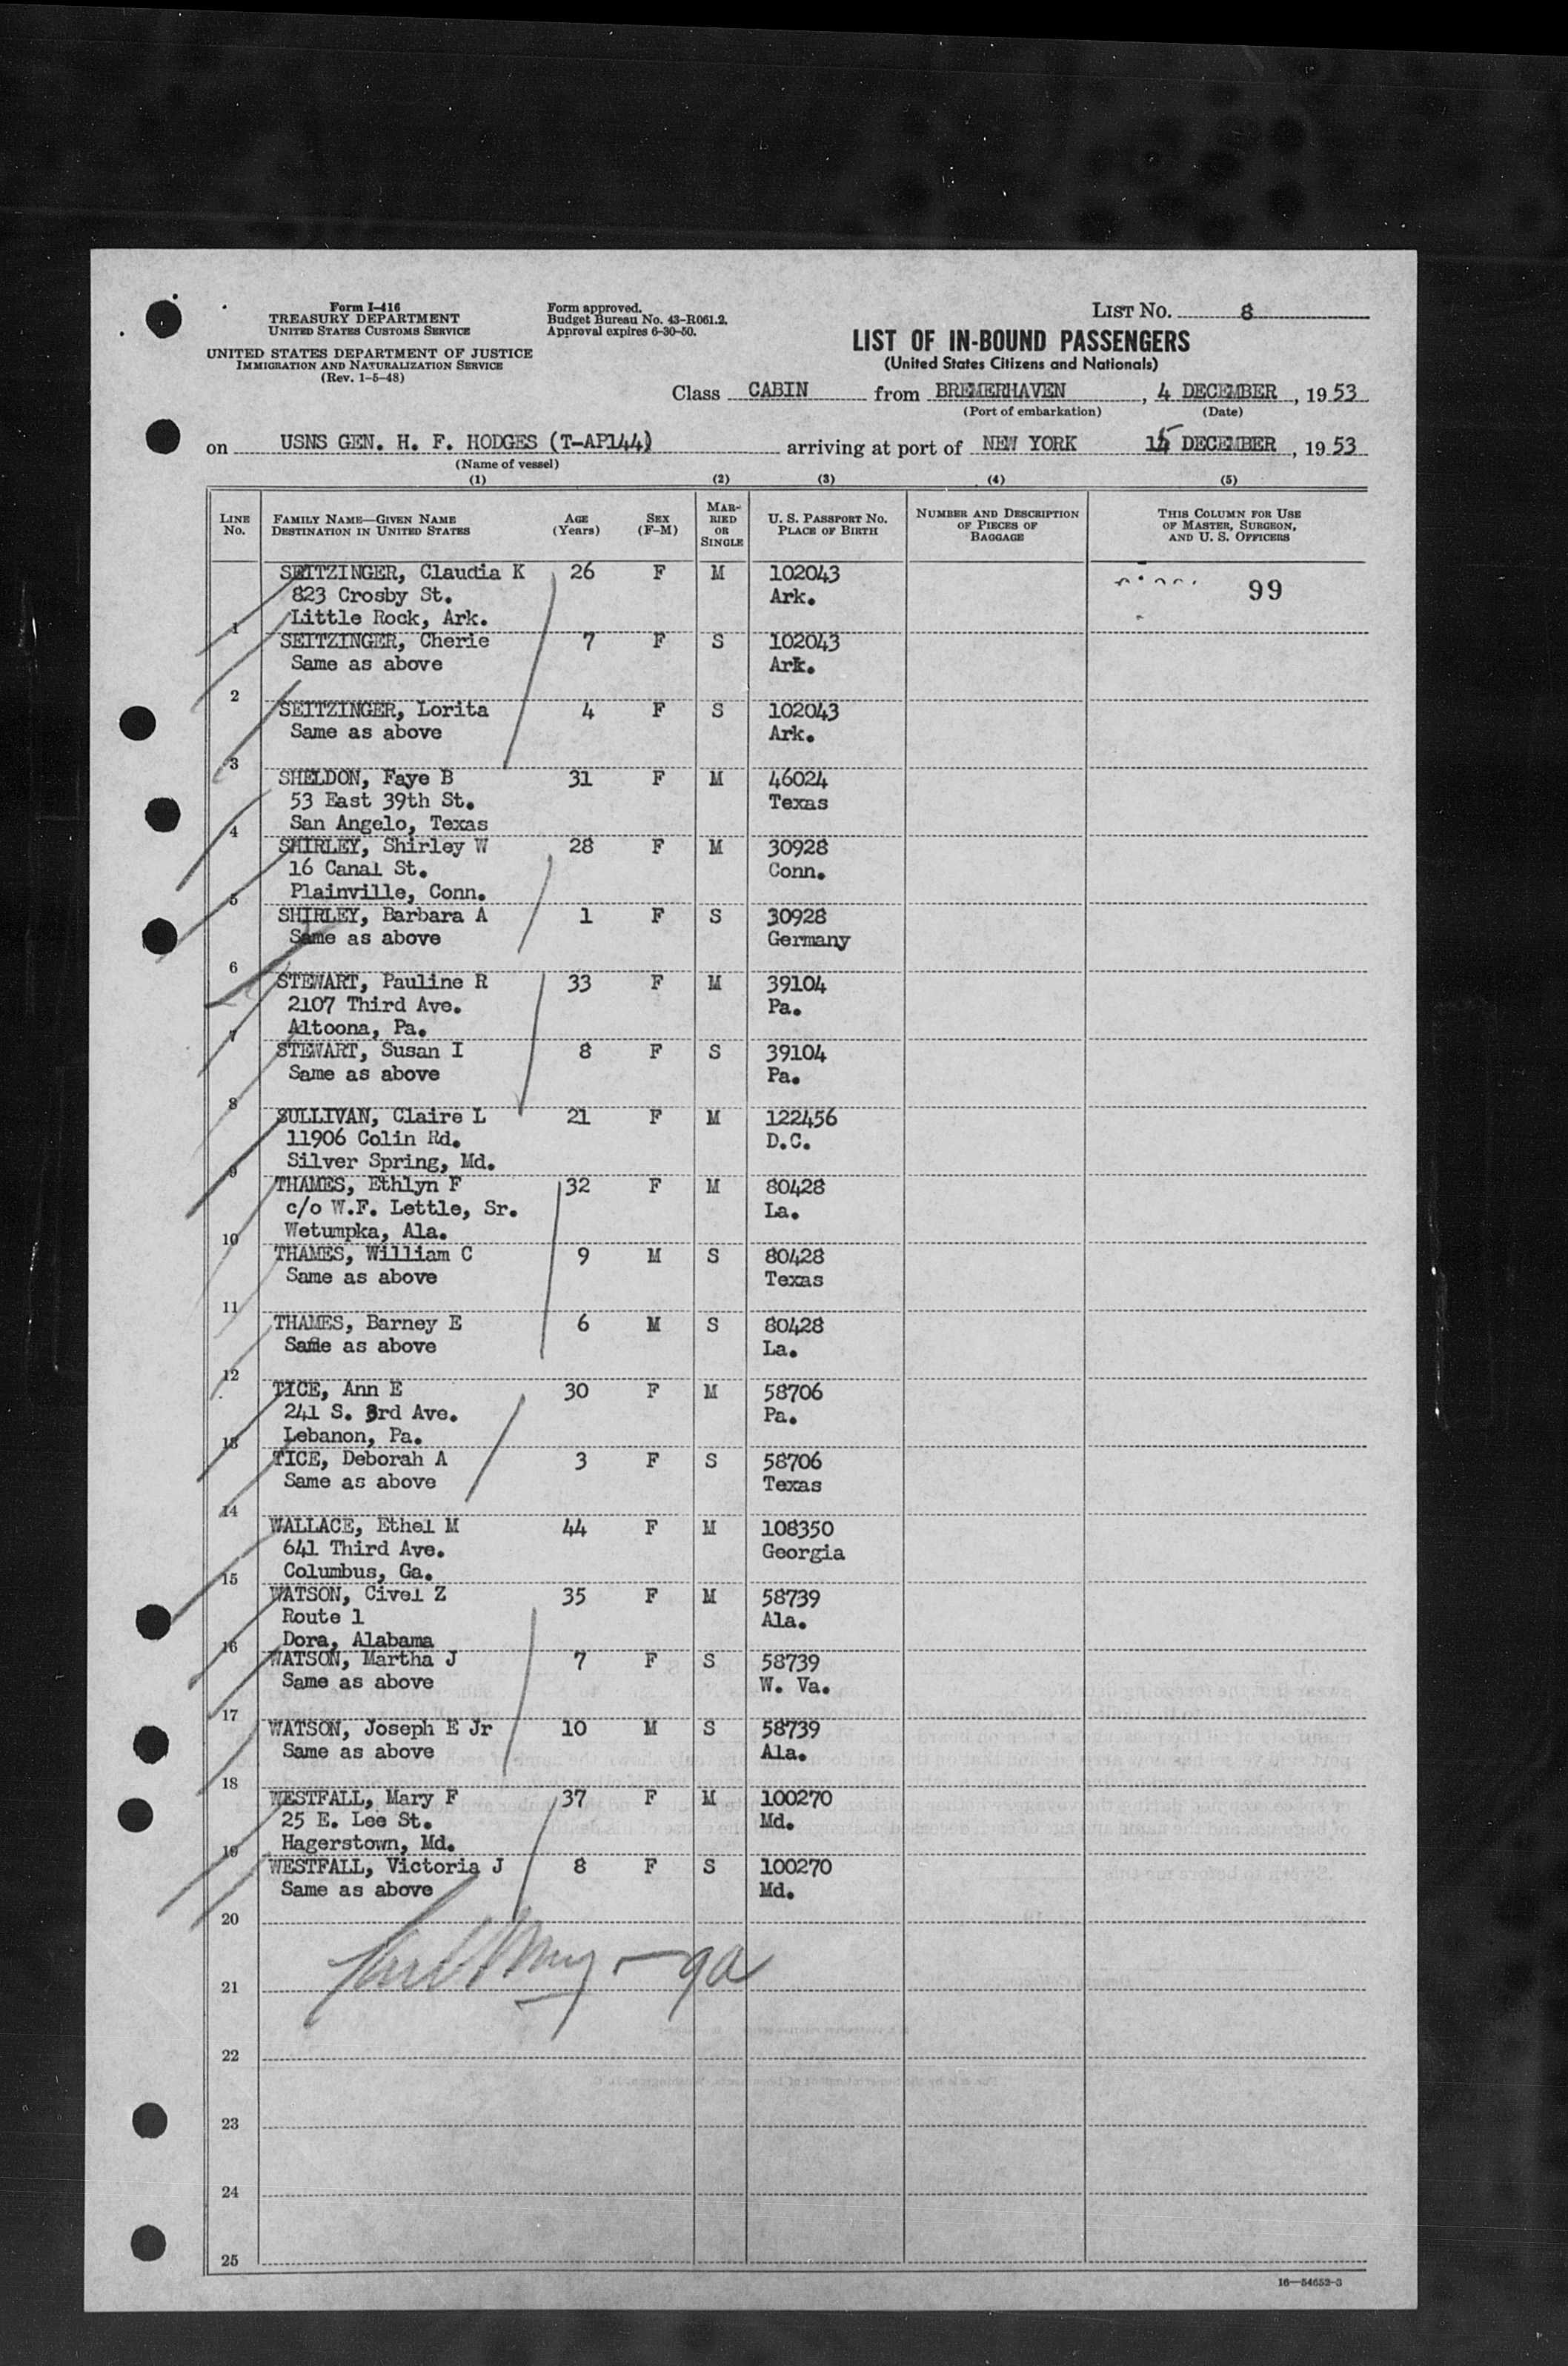 Form I-416
TREASURY DEPARTMENT
UNITED STATES CUSTOMS SERVICE
UNITED STATES DEPARTMENT OF JUSTICE
IMMIGRATION AND NATURALIZATION SERVICE
(Rev. 1-5-48)
Form approved.
Budget Bureau No. 43-R061.2.
Approval expires 6-30-50.
LIST NO. 8
LIST OF IN-BOUND PASSENGERS
(United States Citizens and Nationals)
Class CABIN from BREMERHAVEN, 4 DECEMBER, 1953
(Port of embarkation) (Date)
on USNS GEN. H. F. HODGES (T-AP144) arriving at port of NEW YORK 15 DECEMBER, 1953
(Name of vessel)
(1) (2) (3) (4) (5)
LINE NO. FAMILY NAME—GIVEN NAME DESTINATION IN UNITED STATES AGE (Years) SEX (F-M) MARRIED OR SINGLE U. S. PASSPORT NO. PLACE OF BIRTH NUMBER AND DESCRIPTION OF PIECES OF BAGGAGE THIS COLUMN FOR USE OF MASTER, SURGEON, AND U. S. OFFICERS
SEITZINGER, Claudia K 26 F M 102043
823 Crosby St. Ark. 99
1 Little Rock, Ark.
SEITZINGER, Cherie 7 F S 102043
Same as above Ark.
2
SEITZINGER, Lorita 4 F S 102043
Same as above Ark.
3
SHELDON, Faye B 31 F M 46024
53 East 39th St. Texas
4 San Angelo, Texas
SHIRLEY, Shirley W 28 F M 30928
16 Canal St. Conn.
5 Plainville, Conn.
SHIRLEY, Barbara A 1 F S 30928
Same as above Germany
6
STEWART, Pauline R 33 F M 39104
2107 Third Ave. Pa.
7 Altoona, Pa.
STEWART, Susan I 8 F S 39104
Same as above Pa.
8
SULLIVAN, Claire L 21 F M 122456
11906 Colin Rd. D.C.
9 Silver Spring, Md.
THAMES, Ethlyn F 32 F M 80428
c/o W.F. Lettle, Sr. La.
10 Wetumpka, Ala.
THAMES, William C 9 M S 80428
Same as above Texas
11
THAMES, Barney E 6 M S 80428
Same as above La.
12
TICE, Ann E 30 F M 58706
241 S. 3rd Ave. Pa.
13 Lebanon, Pa.
TICE, Deborah A 3 F S 58706
Same as above Texas
14
WALLACE, Ethel M 44 F M 108350
641 Third Ave. Georgia
15 Columbus, Ga.
WATSON, Civel Z 35 F M 58739
Route 1 Ala.
16 Dora, Alabama
WATSON, Martha J 7 F S 58739
Same as above W. Va.
17
WATSON, Joseph E Jr 10 M S 58739
Same as above Ala.
18
WESTFALL, Mary F 37 F M 100270
25 E. Lee St. Md.
19 Hagerstown, Md.
WESTFALL, Victoria J 8 F S 100270
Same as above Md.
20
21
22
23
24
25
16—54652-3